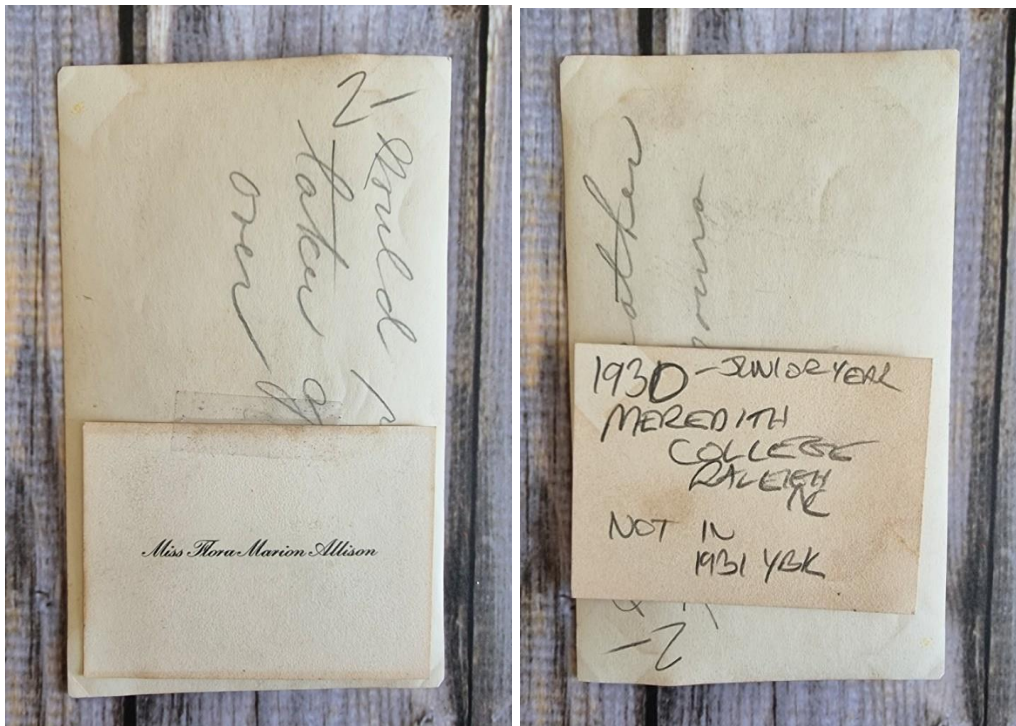 I would
taken
over
Miss Flora Marion Allison
other
1930 - JUNIOR YEAR
MEREDITH
COLLEGE
RALEIGH
NC
NOT IN
1931 YBK